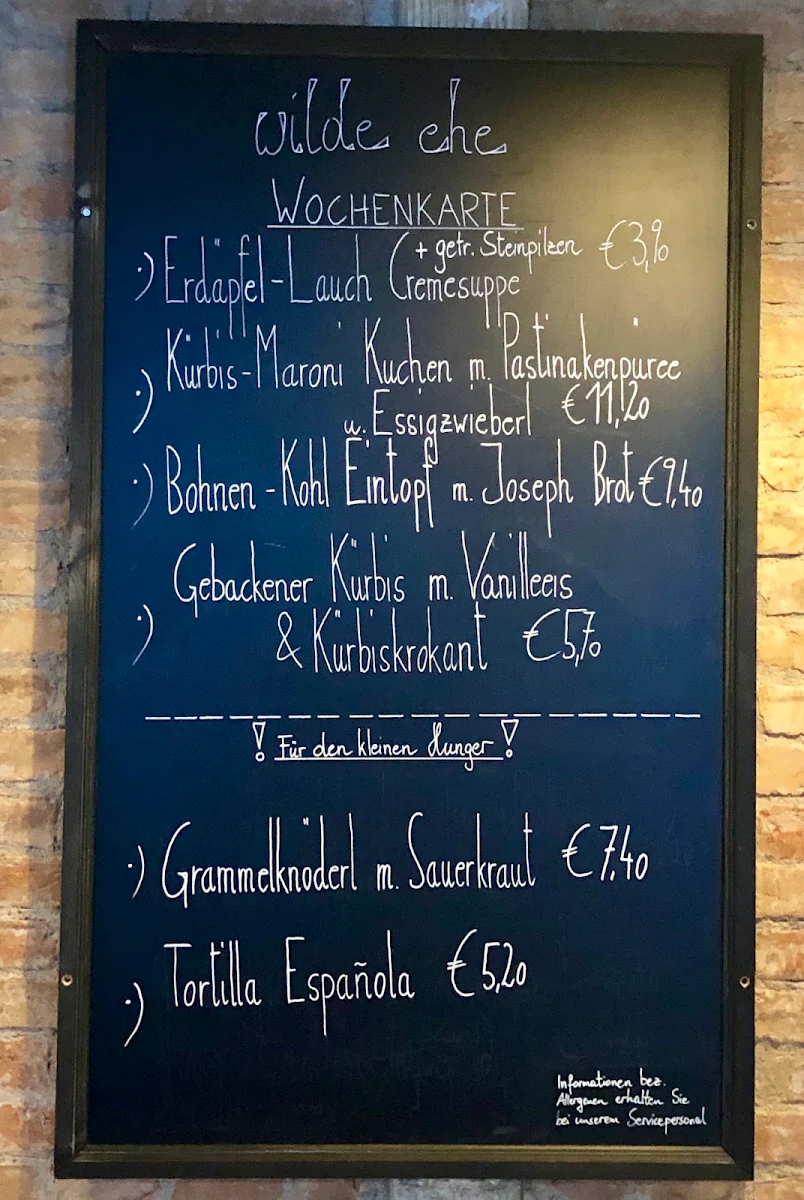 wilde ehe
WOCHENKARTE
+ getr. Steinpilzen €3,90
:) Erdäpfel-Lauch Cremesuppe
Kürbis-Maroni Kuchen m. Pastinakenpüree
:) u. Essigzwieberl €11,20
:) Bohnen-Kohl Eintopf m. Joseph Brot €9,40
Gebackener Kürbis m. Vanilleeis
:) & Kürbiskrokant €5,70
! Für den kleinen Hunger !
:) Grammelknöderl m. Sauerkraut €7,40
:) Tortilla Española €5,20
Informationen bez.
Allergenen erhalten Sie
bei unserem Servicepersonal